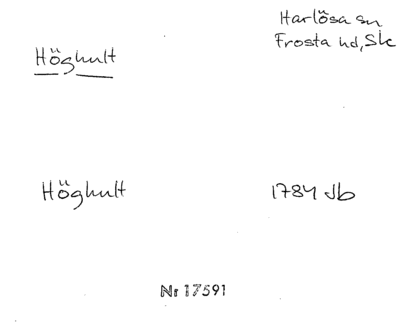 Harlösa sn
Höghult
Frosta hd, Sk
Höghult
1784 Jb
Nr 17591